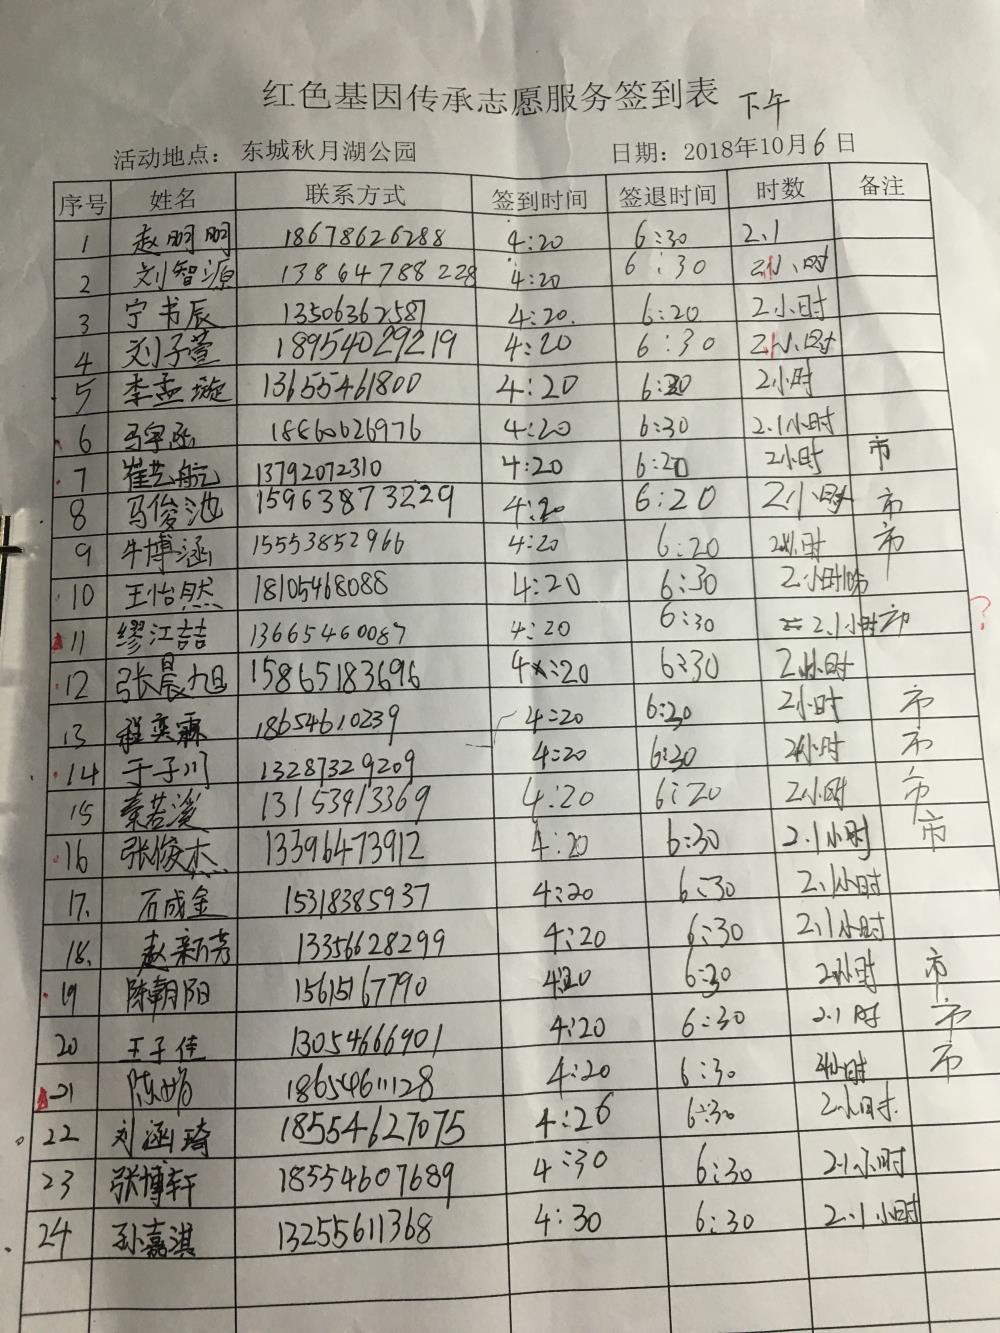 红色基因传承志愿服务签到表 下午
活动地点： 东城秋月湖公园 日期：2018年10月6日
序号 姓名 联系方式 签到时间 签退时间 时数 备注
1 赵明明 18678626288 4:20 6:30 2.1
2 刘智源 13864788228 4:20 6:30 2小时
3 宁书辰 13506362587 4:20. 6:20 2小时
4 刘子萱 18954029219 4:20 6:30 2.1小时
5 李孟璇 13655461800 4:20 6:20 2小时
6 马宇函 18860626976 4:20 6:30 2.1小时
7 崔艺航 13792072310 4:20 6:20 2小时 市
8 马俊池 15963873229 4:20 6:20 2小时 市
9 牛博涵 15553852966 4:20 6:20 2小时 市
10 王怡然 18105468088 4:20 6:30 2小时
11 缪江喆 13665460087 4:20 6:30 2.1小时 市 ?
12 张晨旭 15865183696 4:20 6:30 2小时
13 程奕霖 18654610239 4:20 6:30 2小时 市
14 于子川 13287329209 4:20 6:30 2小时 市
15 秦若溪 13153913369 4:20 6:20 2小时 市
16 张俊杰 13396473912 4:20 6:30 2.1小时 市
17. 石成金 15318385937 4:20 6:30 2.1小时
18. 赵新尧 13356628299 4:20 6:30 2.1小时
19 陈朝阳 15615167790 4:20 6:30 2小时 市
20 王子佳 13054666901 4:20 6:30 2.1时 市
21 陈 18654611128 4:20 6:30 小时 市
22 刘涵琦 18554627075 4:26 6:30 2小时.
23 张博轩 18554607689 4:30 6:30 2.1小时
24 孙嘉淇 13255611368 4:30 6:30 2.1小时